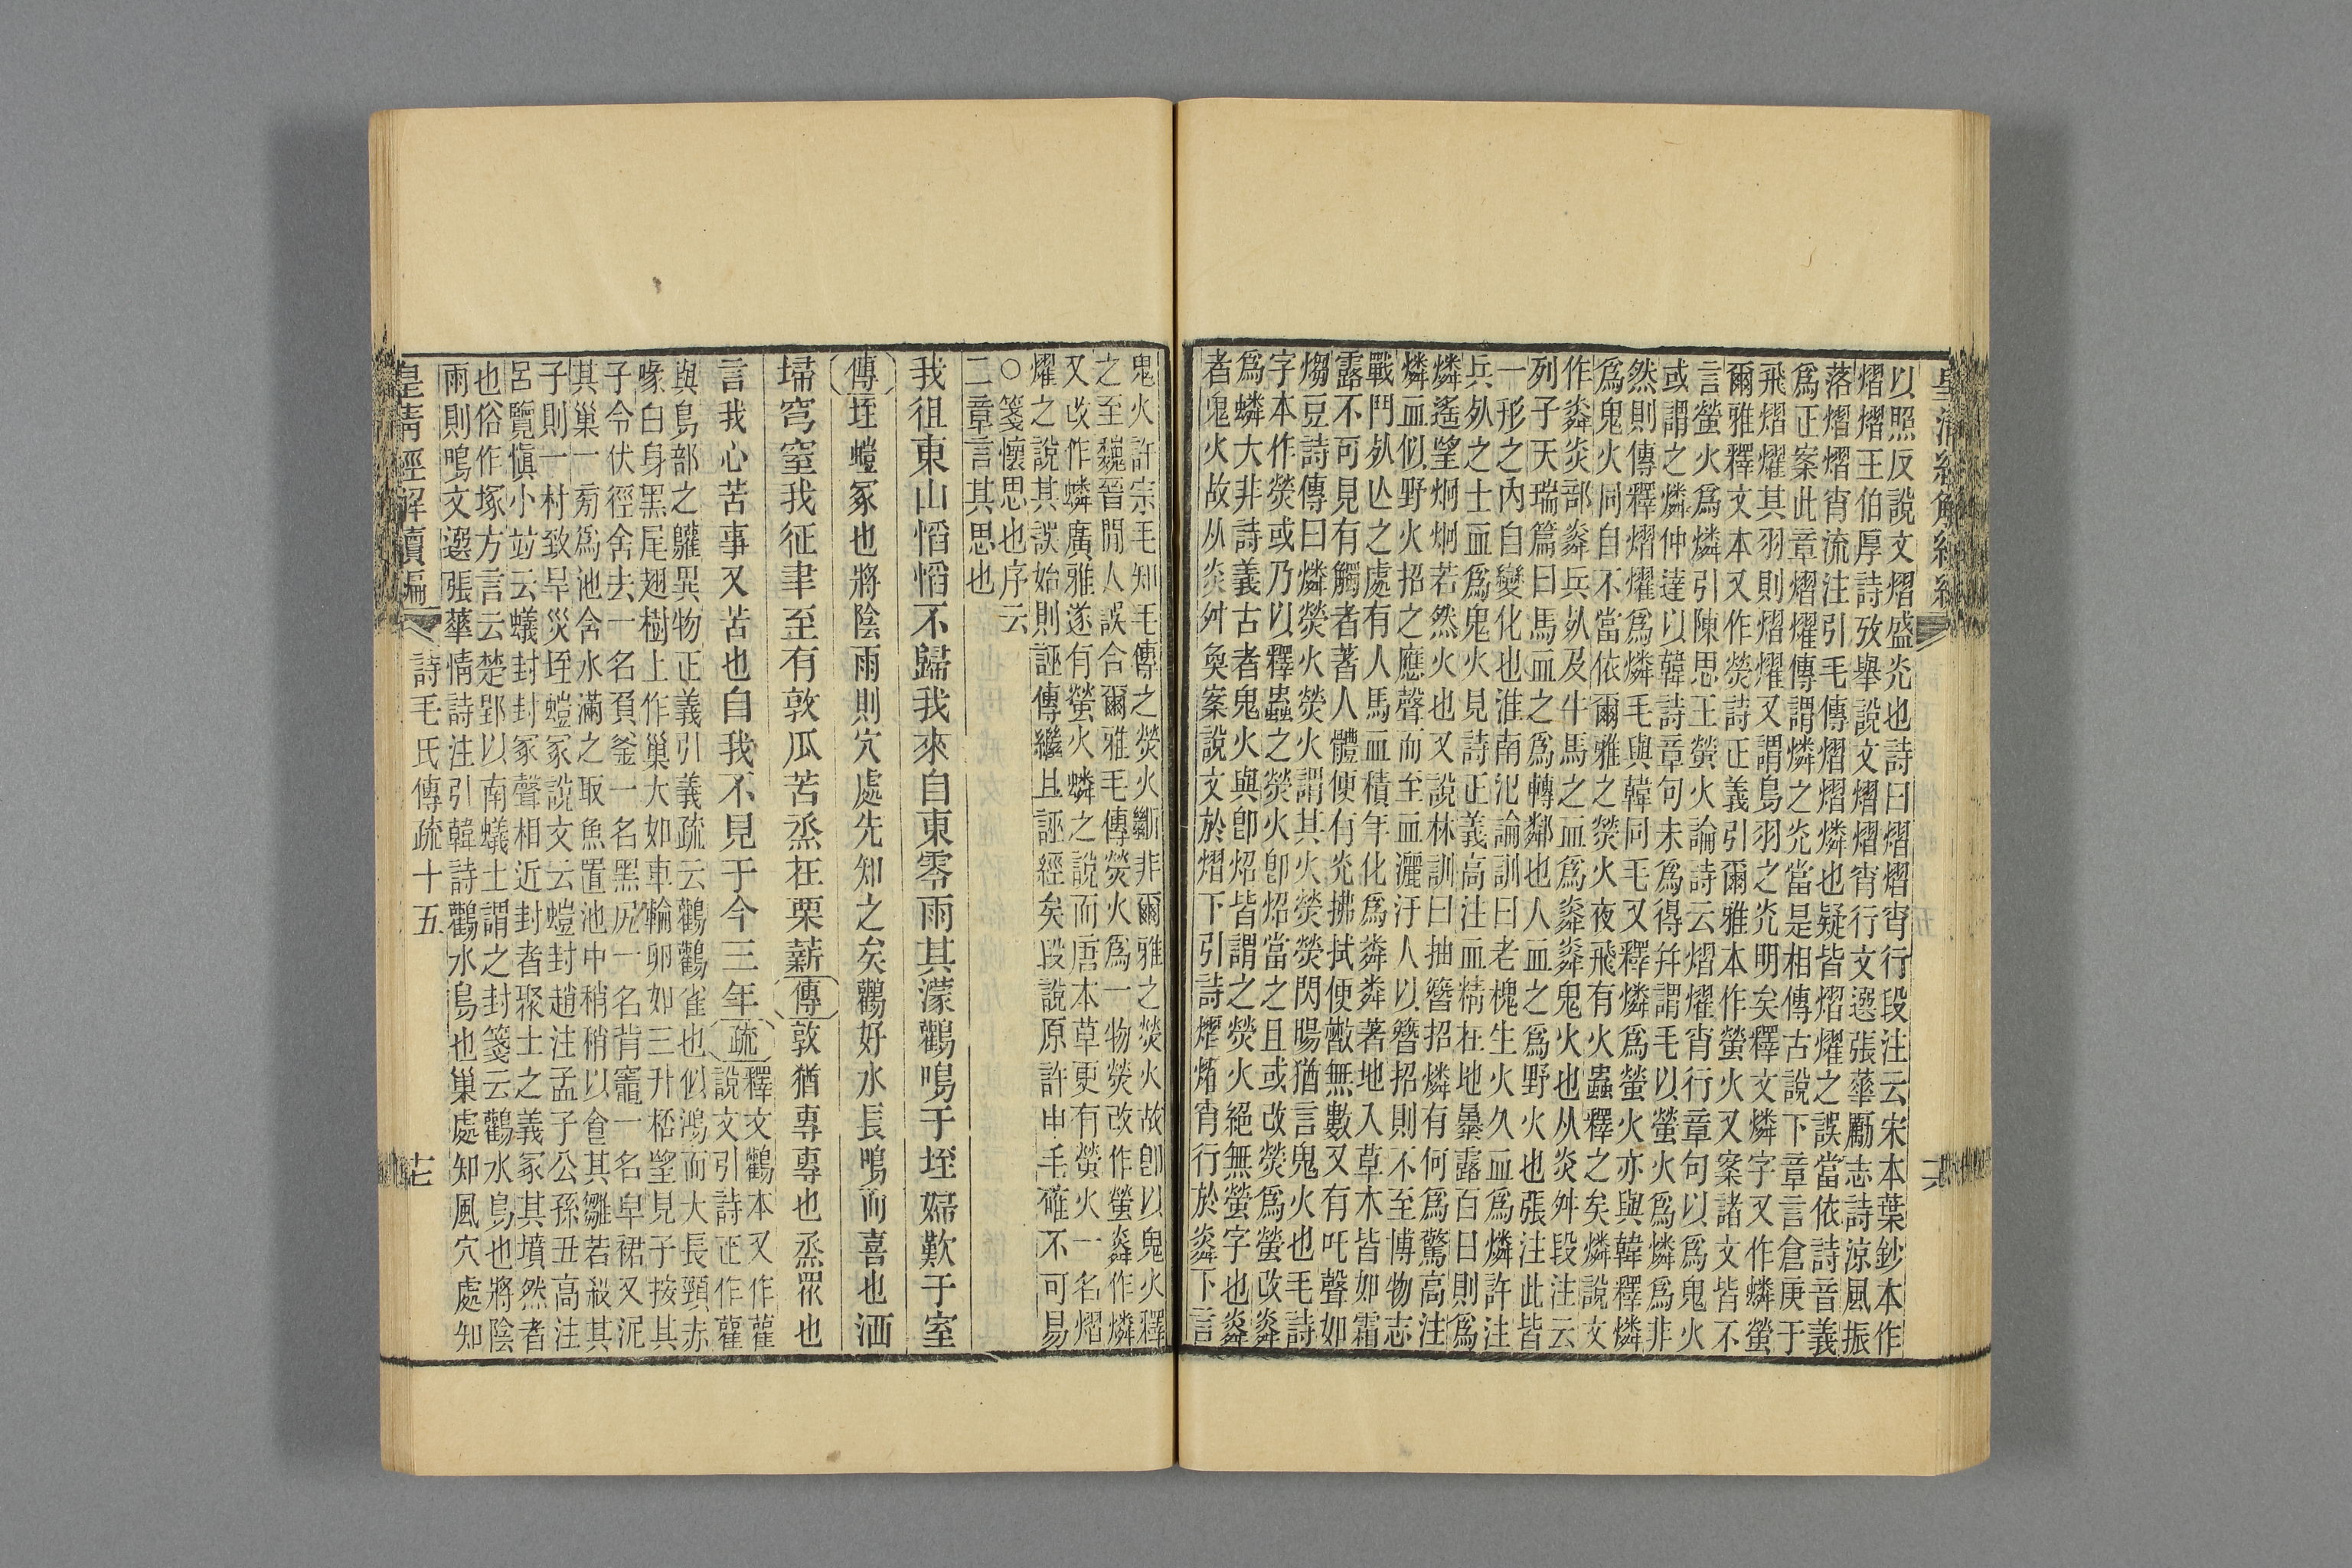 皇清經解續編
以照反說文熠盛光也詩曰熠熠宵行段注云宋本葉鈔本作
熠熠王伯厚詩攷舉說文熠熠宵行文選張華勵志詩涼風振
落熠熠宵流注引毛傳熠熠燐也疑皆熠燿之誤當依詩音義
為正案此章熠燿傳謂燐之光當是相傳古說下章言倉庚于
飛熠燿其羽則熠燿又謂鳥羽之光明矣釋文燐字又作蠎螢
爾雅釋文本又作熒詩正義引爾雅本作螢火又案諸文皆不
言螢火為燐引陳思王螢火論詩云熠燿宵行章句以為鬼火
或謂之燐仲達以韓詩章句未為得幷謂毛以螢火為燐為非
然則傳釋熠燿為燐毛與韓同毛又釋燐為螢火亦與韓釋燐
為鬼火同自不當依爾雅之熒火夜飛有火蟲釋之矣燐說文
作粦炎部粦兵死及牛馬之血為粦粦鬼火也从炎舛段注云
列子天瑞篇曰馬血之為轉鄰也人血之為野火也張注此皆
一形之內自變化也淮南氾論訓曰老槐生火久血為燐許注
兵死之士血為鬼火見詩正義高注血精在地暴露百日則為
燐遙望炯炯若然火也又說林訓曰抽簪招燐有何為驚高注
燐血似野火招之應聲而至血灑汙人以簪招則不至博物志
戰鬥死亾之處有人馬血積年化為粦粦著地入草木皆如霜
露不可見有觸者著人體便有光拂拭便散無數又有吒聲如
爛豆詩傳曰燐熒火熒火謂其火熒熒閃暘猶言鬼火也毛詩
字本作熒或乃以釋蟲之熒火卽炤當之且或改熒為螢改粦
為蠎大非詩義古者鬼火與卽炤皆謂之熒火絕無螢字也粦
者鬼火故从炎舛奐案說文於熠下引詩燿燿宵行於粦下言
鬼火許宗毛知毛傳之熒火斷非爾雅之熒火故卽以鬼火釋
之至魏晉閒人誤合爾雅毛傳熒火為一物熒改作螢粦作燐
又改作蠎廣雅遂有螢火蠎之說而唐本草更有螢火一名熠
燿之說其誤始則誣傳繼且誣經矣段說原許申毛確不可易
○箋懷思也序云
二章言其思也
我徂東山慆慆不歸我來自東零雨其濛鸛鳴于垤婦歎于室
傳垤螘冢也將陰雨則穴處先知之矣鸛好水長鳴而喜也洒
埽穹窒我征聿至有敦瓜苦烝在栗薪傳敦猶專專也烝眾也
言我心苦事又苦也自我不見于今三年疏釋文鸛本又作雚
說文引詩正作雚
與鳥部之鸛異物正義引義疏云鸛鸛雀也似鴻而大長頸赤
喙白身黑尾翅樹上作巢大如車輪卵如三升桮望見子按其
子令伏徑舍去一名負釜一名黑尻一名背竈一名皁裙又泥
其巢一旁為池含水滿之取魚置池中稍稍以食其雛若殺其
子則一村致旱災垤螘冢說文云螘封趙注孟子公孫丑高注
呂覽愼小竝云蟻封封冢聲相近封者聚土之義冢其墳然者
也俗作塚方言云楚郢以南蟻土謂之封箋云鸛水鳥也將陰
雨則鳴文選張華情詩注引韓詩鸛水鳥也巢處知風穴處知
皇清經解續編
詩毛氏傳疏十五